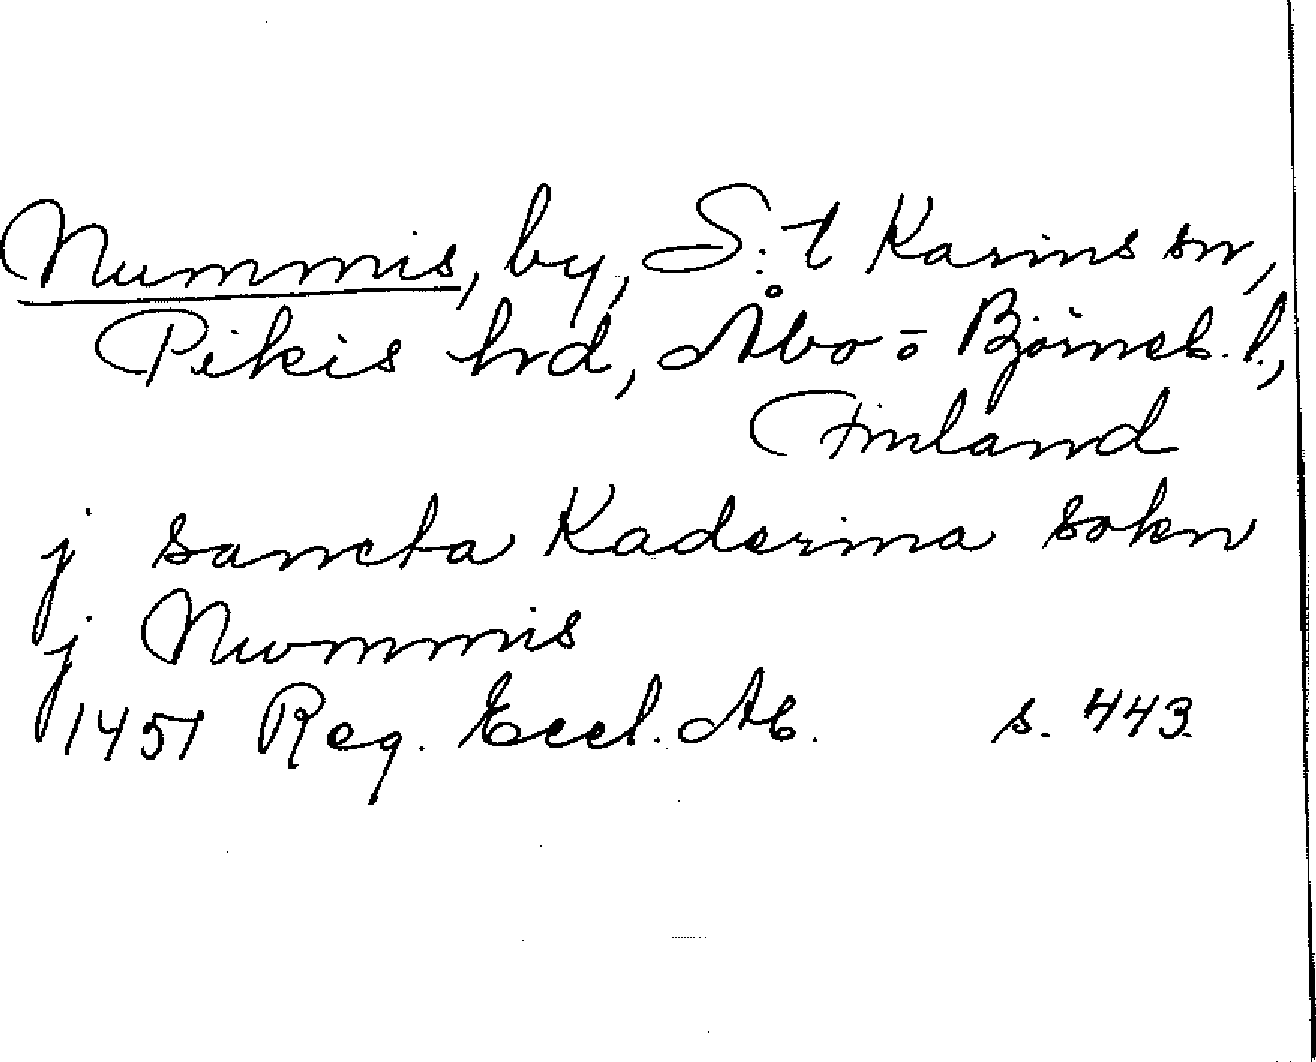 Nummis, by, S:t Karins sn,
Pikis hd, Åbo o Björneb. l.,
Finland
j sancta Kaderina sokn
j Nwmmis
1451 Reg. Eccl. Ab. s. 443